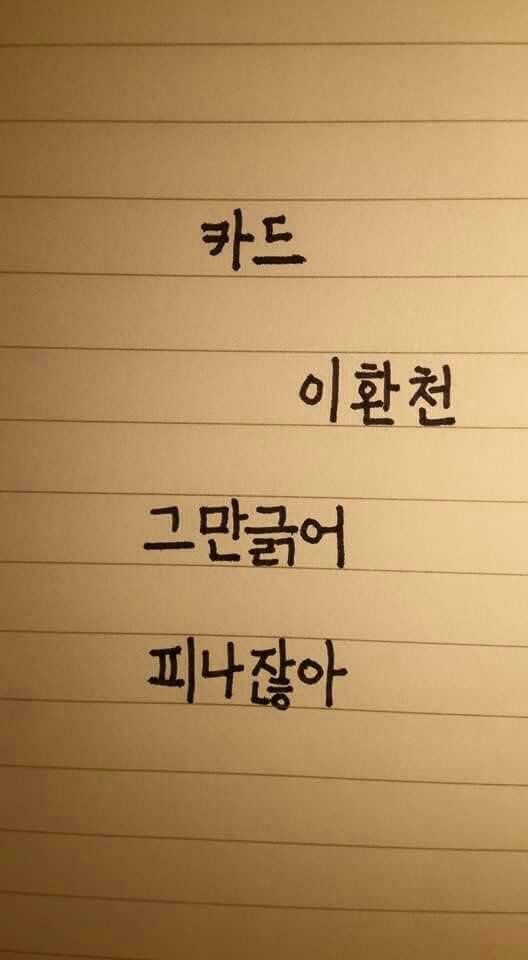 카드
이환천
그만긁어
피나잖아